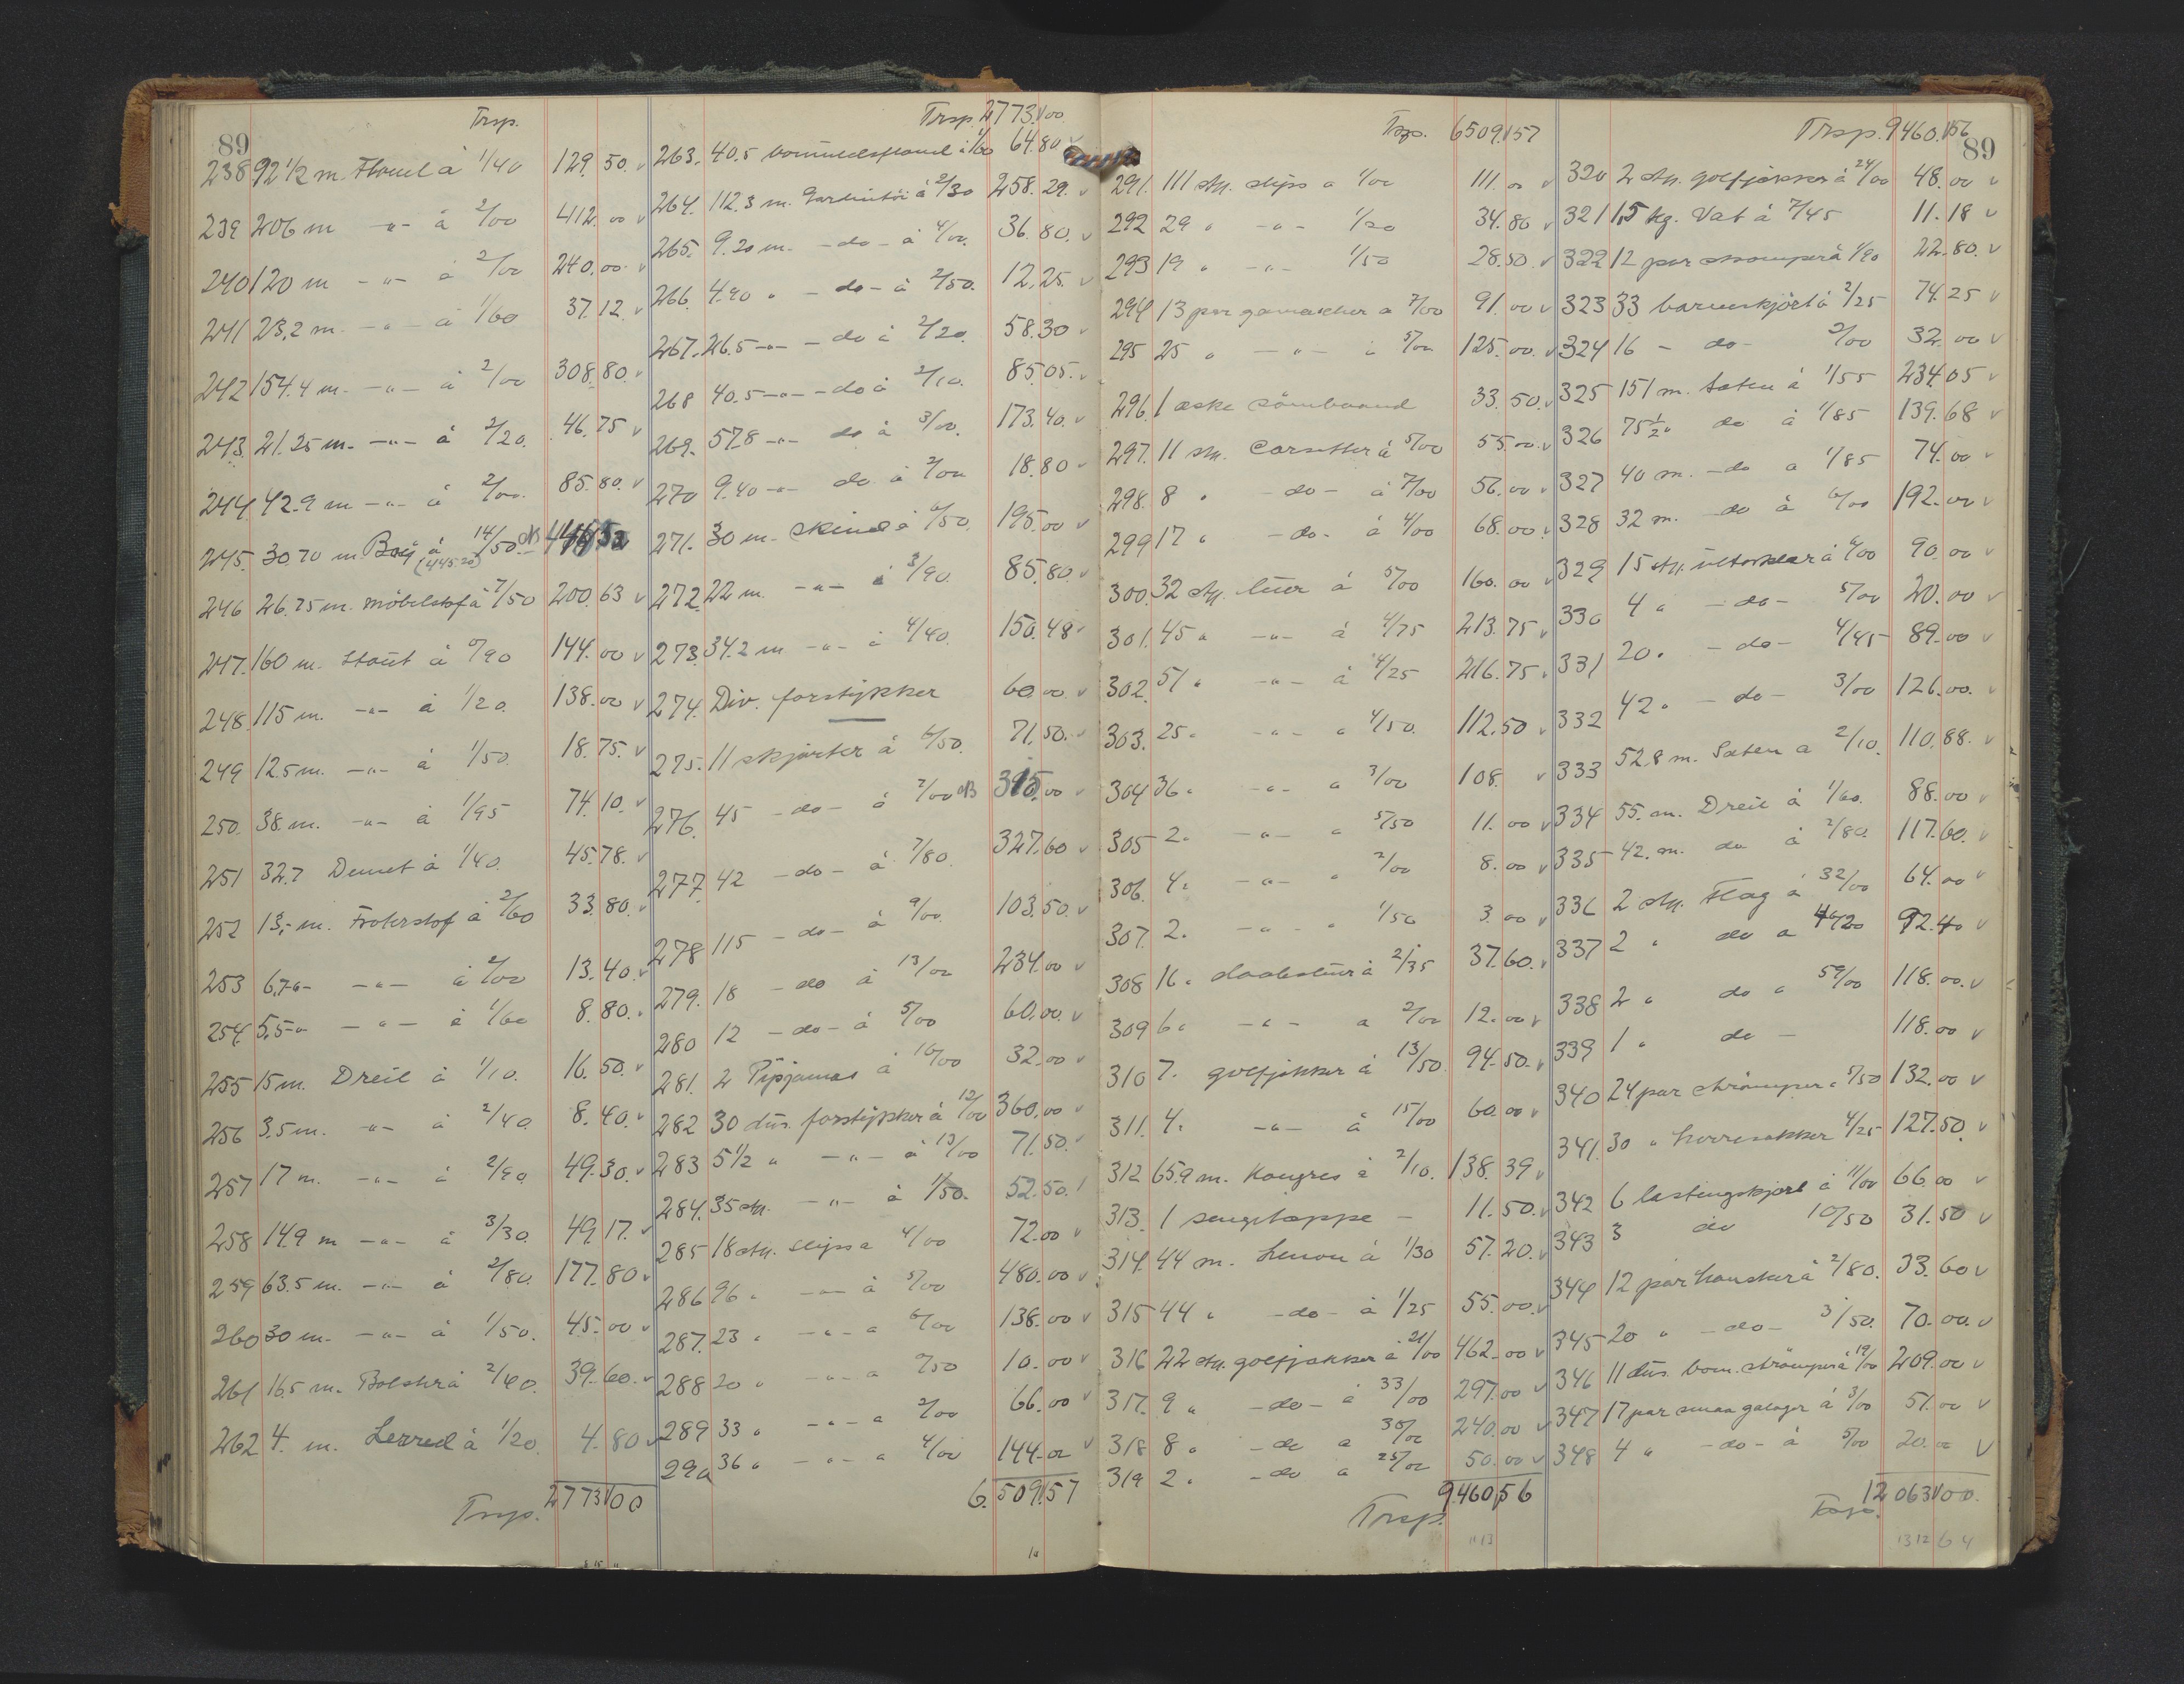 Trsp.
89
238 92 1/2 m. Flonel à 1/40 129.50.
239 206 m -"- à 2/00 412.00
240 120 m -"- à 2/00 240.00
241 23,2 m. -"- à 1/60 37.12.
242 154.4 m. -"- à 2/00 308.80.
243. 21.25 m. -"- à 2/20. 46.75
244. 42.9 m -"- à 2/00. 85.80.
245. 30.70 m Boij à 14/50.
(445.20)
246 26.75 m. möbelstof à 7/50 200.63
247. 160 m. Stout à 0/90 144.00
248. 115 m. -"- à 1/20. 138.00
249 12.5 m. -"- à 1/50. 18.75.
250. 38. m. -"- à 1/95 74.10.
251 32.7 Demet à 1/40. 45.78.
252 13,- m. Froterstof à 2/60 33.80.
253 6,7 -"- à 2/00 13.40.
254. 5,5 " -"- à 1/60 8.80.
255 15 m. Dreil à 1/10. 16.50.
256 3.5 m. -"- à 2/40. 8.40.
257 17 m. -"- à 2/90. 49.30.
258 14.9 m -"- à 3/30. 49.17.
259 63.5 m. -"- à 2/80. 177.80
260 30 m. -"- à 1/50. 45.00
261 16.5 m. Bolster à 2/40. 39.60.
262 4. m. Lerred à 1/20. 4.80
Trsp. 2773.00
Trsp 2773.00
263. 40.5 bommuldsflonel à 1/60 64.80
264. 112.3 m. Gardintöi à 2/30 258.29.
265. 9.20 m. -do- à 4/00. 36.80.
266. 4.90 " -do- à 2/50. 12.25.
267. 26.5 -"- do à 2/20. 58.30
268 40.5 -"- do à 2/10. 85.05.
269. 57.8 -"- do à 3/00. 173.40.
270 9.40 -"- do à 2/00 18.80
271. 30 m. Skind à 6/50. 195.00
272 22 m. -"- à 3/90. 85.80.
273. 34.2 m -"- à 4/40. 150.48
274. Div. forstykker 60.00
275. 11 skjorter à 6/50. 71.50.
276. 45 -do- à 7/00 315.00
277. 42 -do- à 7/80. 327.60
278 115 -do- à 9/00. 103.50.
279. 18 -do à 13/00 234.00
280 12 -do- à 5/00 60.00.
281. 2 Pyjamas à 16/00 32.00
282 30 dus. forstykker à 12/00 360.00
283 5 1/2 " -"- à 13/00 71.50.
284. 35 stk. -"- à 1/50. 52.50.
285 18 stk. slips a 4/00 72.00
286 96 " -"- à 5/00 480.00
287. 23 " -"- a 6/00 138.00
288 20 " -"- a 0/50 10.00
289 33 " -"- a 2/00 66.00
290 36 " -"- a 4/00 144.00
6.509.57
Trsp. 6509.57
291. 111 stk. slips a 1/00 111.00
292 29 " -"- 1/20 34.80
293 19 " -"- 1/50 28.50.
294 13 par gamascher a 7/00 91.00
295 25 " -"- à 5/00 125.00.
296. 1 æske sömbaand 33.50.
297. 11 stk. Corsetter à 5/00 55.00.
298. 8 " -do- à 7/00 56.00
299 17 " -do- à 4/00 68.00.
300. 32 stk. luer à 5/00 160.00
301. 45 " -"- à 4/75 213.75
302. 51 " -"- à 4/25 216.75
303. 25 " -"- a 4/50. 112.50
304 36 " -"- a 3/00 108.
305 2. -"- a 5/50 11.00
306. 4. -"- " 2/00 8.00
307. 2. -"- " 1/50 3.00
308 16. daabsluer à 2/35 37.60.
309 6 " -"- a 2/00 12.00
310 7. golfjakker à 13/50. 94.50.
311. 4. -"- à 15/00 60.00
312 65.9 m. Kongres à 2/10. 138.39
313. 1 sengetæppe - 11.50.
314. 44 m. Lenon à 1/30 57.20.
315 44 " -do- à 1/25 55.00.
316 22 stk. golfjakker à 21/00 462.00
317. 9 " -do- à 33/00 297.00
318 8 " -do a 30/00 240.00
319 2. -do a 25/00 50.00
Trsp. 9.460.56
Trsp. 9460.56
89
320 2 stk. golfjakker à 24/00 48.00
321 1,5 kg. Vat à 7/45 11.18
322 12 par strömper à 1/90 22.80.
323 33 barneskjört à 2/25 74.25
324 16 - do- 2/00 32.00
325 151 m. Saten à 1/55 234.05
326 75 1/2 " do à 1/85 139.68
327 40 m. -do a 1/85 74.00
328 32 m. do à 6/00 192.00
329 15 stk. uldtorklær à 6/00 90.00
330 4 " -do- 5/00 20.00
331 20. -do- 4/45 89.00
332 42. -do- 3/00 126.00.
333 52.8 m. Saten a 2/10. 110.88.
334 55. m. Dreil à 1/60. 88.00
335 42. m. do à 2/80. 117.60.
336 2 stk. Flag à 32/00 64.00
337 2 " do a 46/20 92.40
338 2 " do a 59/00 118.00.
339 1 " do - 118.00
340 24 par strömper a 5/50 132.00
341. 30 " herresokker 4/25 127.50.
342 6 lastingskjort à 11/00 66.00
343 3 do 10/50 31.50
344 12 par hansker à 2/80. 33.60
345 20 " -do- 3/50. 70.00.
346 11 dus. bom. strömper à 19/00 209.00
347 17 par smaa galoger à 3/00 51.00
348 4 " -do- à 5/00 20.00
12 063.00.
Trsp.
1113
131264